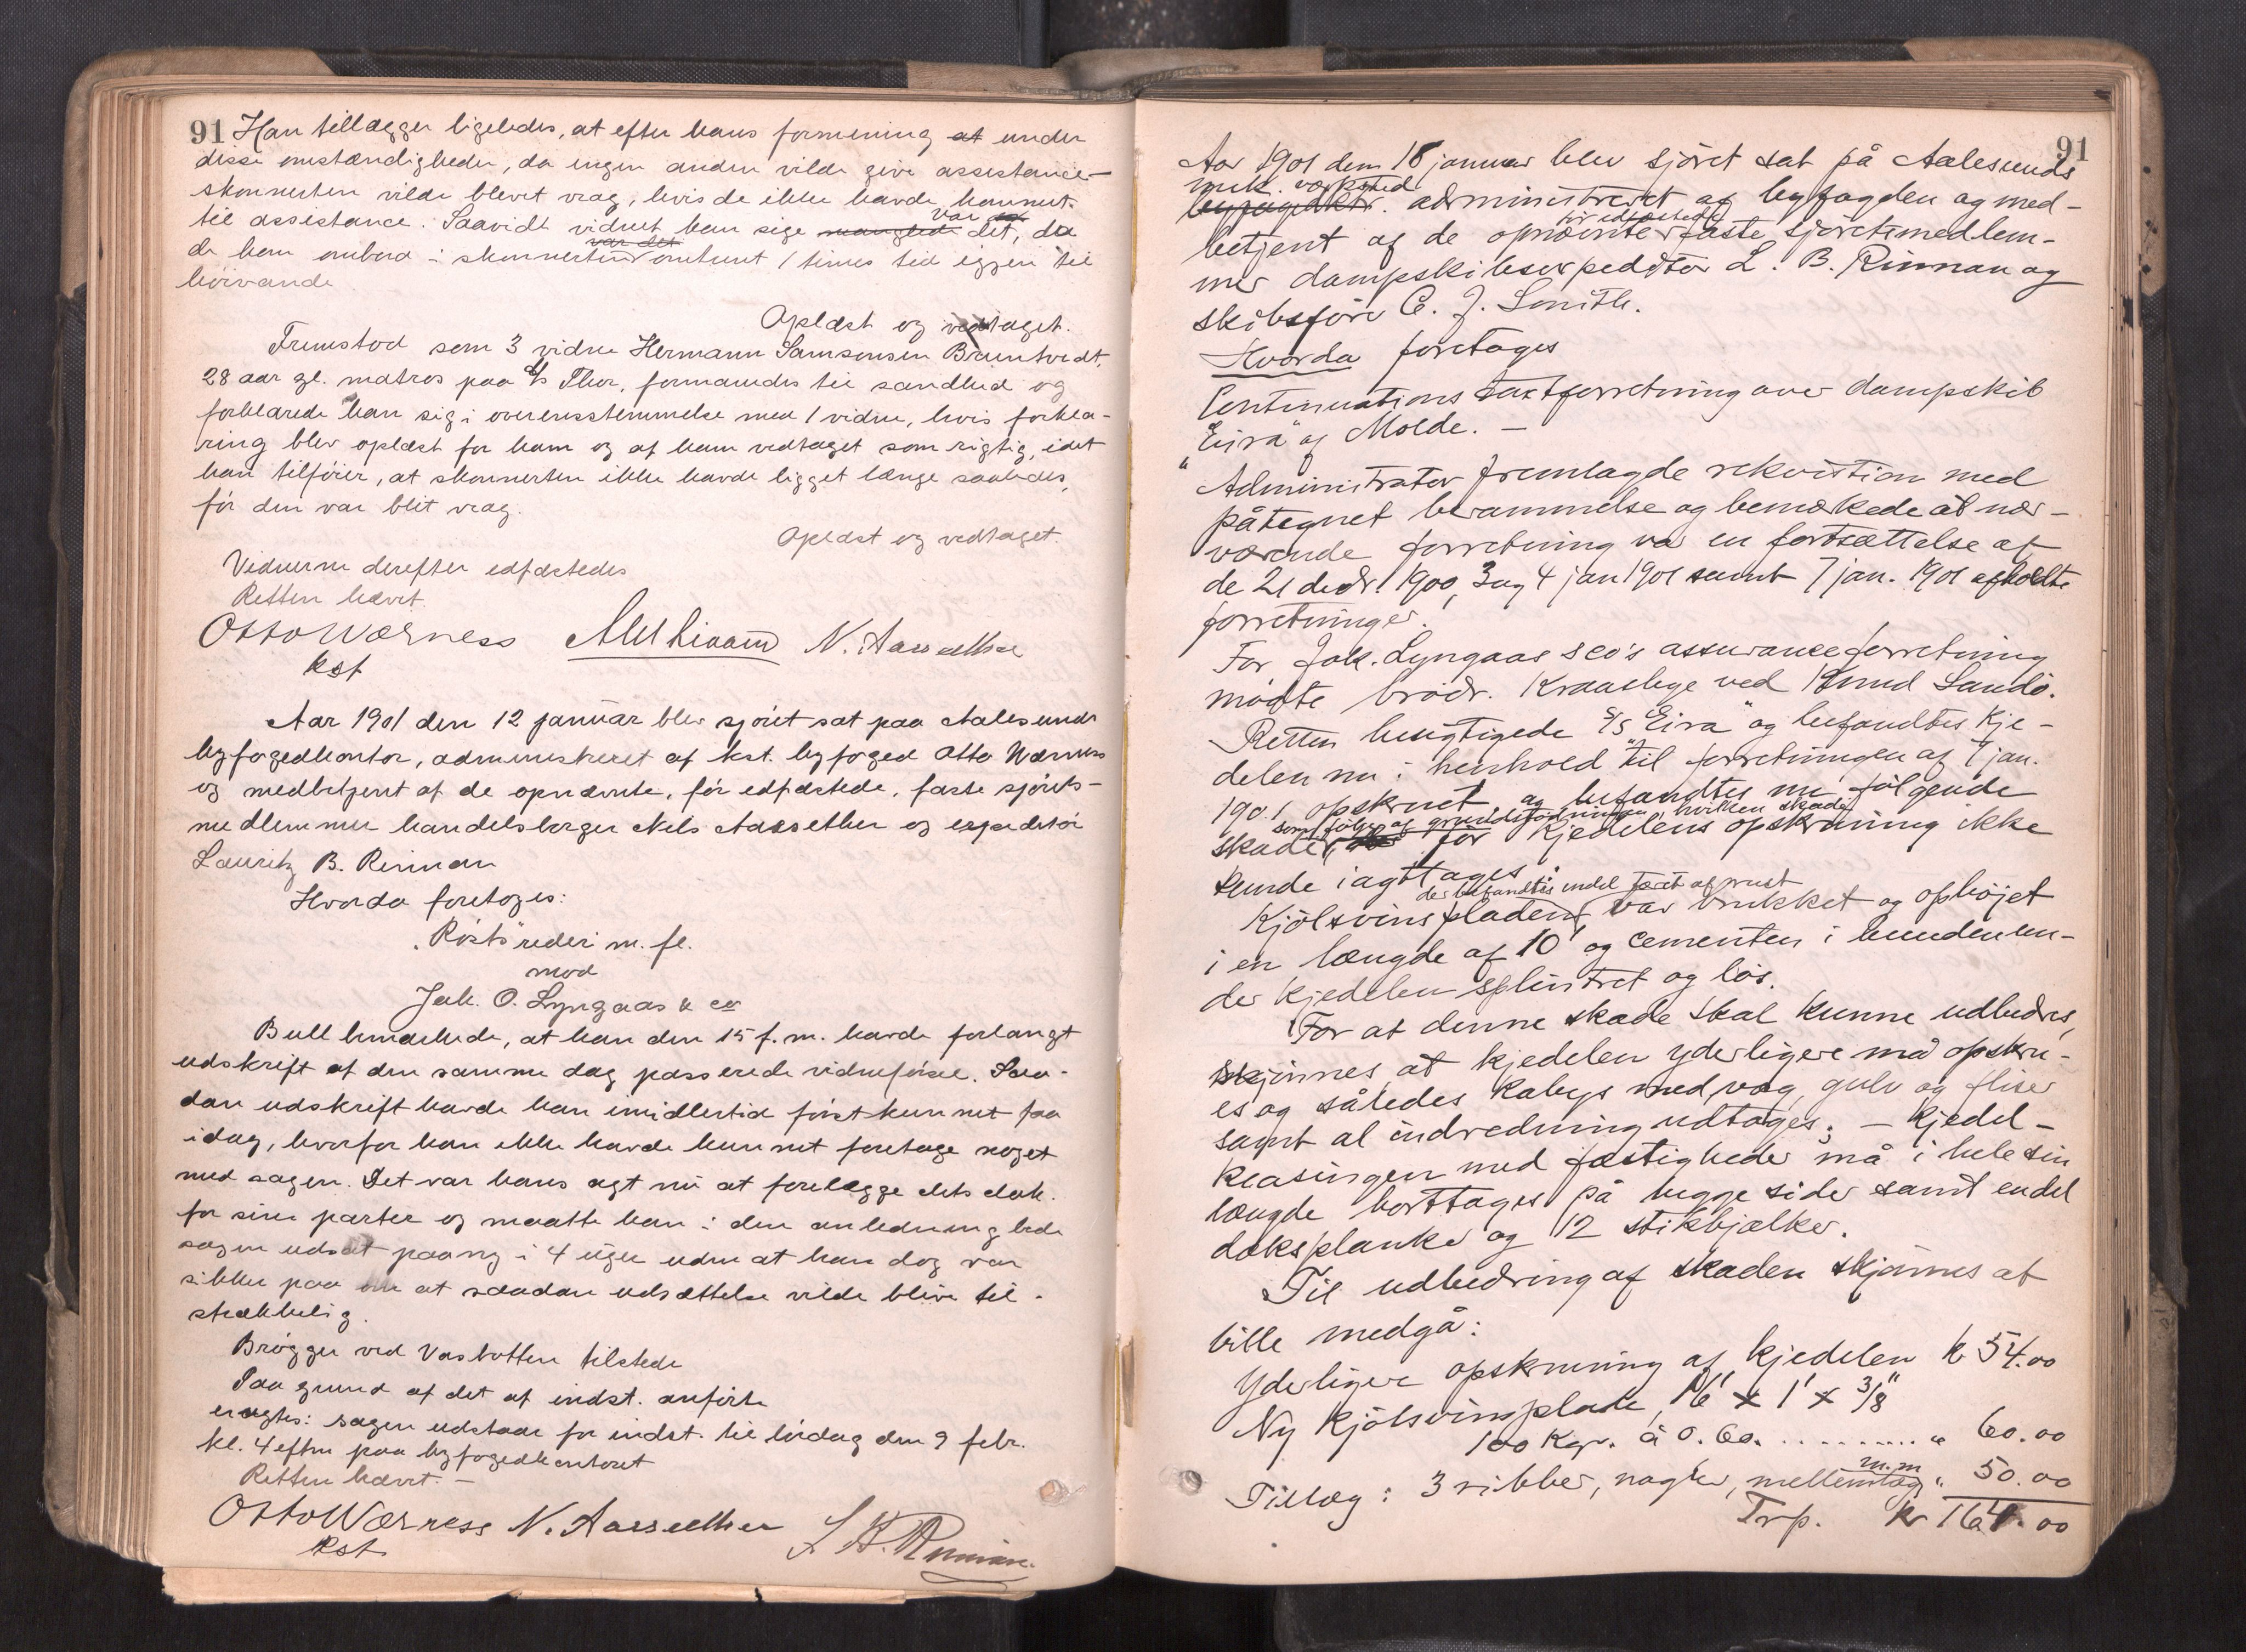 91
Han tillægger ligeledes, at efter hans formening at under
disse omstændigheder, da ingen anden vilde give assistance
skonnerten vilde blevet vrag, hvis de ikke havde kommet
til assistance. Saavidt vidnet kan sige manglede var det, da
de kom ombord i skonnerten var det omtrent 1 times tid igjen til
høivande
Oplæst og vedtaget.
Fremstod som 3 vidne Hermann Samsonsen Bruntvedt,
28 aar gl. matros paa D/S Thor, formanedes til sandhed og
forklarede han sig i overensstemmelse med 1 vidne, hvis forkla-
ring blev oplæst for ham og af ham vedtaget som rigtig, idet
han tilføier, at skonnerten ikke havde ligget længe saaledes,
før den var blit vrag.
Oplæst og vedtaget.
Vidnerne derefter edfæstedes
Retten hævet.
Otto Wærness N. Aarsæther
kst
Aar 1901 den 12 januar blev sjøret sat paa Aalesunds
byfogedkontor, administreret af kst. byfoged Otto Wærness
og medbetjent af de opnævnte, før edfæstede, faste sjørets-
medlemmer handelsborger Nils Aarsæther og expeditør
Lauritz B. Rinnan
Hvorda foretoges:
"Røsts" rederi m. fl.
mod
Jak. O. Lyngaas & co
Bull bemærkede, at han den 15 f. m. havde forlangt
udskrift af den samme dag passerede vidneførsel. Saa-
dan udskrift havde han imidlertid først kunnet faa
idag, hvorfor han ikke havde kunnet foretage noget
med sagen. Det var hans agt nu at forelægge dets dok.
for sine parter og maatte han i den anledning bede
sagen udsat paany i 4 uger uden at han dog var
sikker paa om at saadan udsættelse vilde blive til-
strækkelig.
Brøgger ved Vasbotten tilstede
Paa grund af det af indst. anførte
eragtes: sagen udstaar for indst. til lørdag den 9 febr.
kl. 4 eftm paa byfogedkontoret
Retten hævet. —
Otto Wærness N. Aarsæther L. B. Rinnan.
kst
91
Aar 1901 den 18 januar blev sjöret sat på Aalesunds
mek. værksted
byfogedktr. administreret af byfogden og med-
før edfæstede
betjent af de opnævnte faste sjöretsmedlem-
mer dampskibsexpeditör L. B. Rinnan og
skibsförer C. J. Smith.
Hvorda foretages
Continuations taxtforretning over dampskib
"Eira" af Molde. —
Administrator fremlagde rekvisition med
påtegnet berammelse og bemærkede at nær-
værende forretning var en fortsættelse af
de 21 decbr 1900, 3 og 4 jan 1901 samt 7 jan. 1901 afholdte
forretninger.
For Jak. Lyngaas & co's assuranceforretning
mödte brödr. Kraasbye ved Knud Sandö.
Retten besigtigede S/S "Eira" og befandtes kje-
delen nu i henhold til forretningen af 7 jan.
1901 opskruet og befandtes nu fölgende
som fölge af grundstödningen, hvilken skade
skade för kjedelens opskruning ikke
kunde iagttages:
der befandtes endel tæret af rust
Kjölsvinspladen, var brukket og ophöjet
i en længde af 10' og cementen i bunden un-
der kjedelen splintret og lös.
For at denne skade skal kunne udbedres,
skjönnes at kjedelen yderligere må opskru-
es og således kabys med væg, gulv og fliser
samt al indredning udtages; — kjedel-
keasingen med fastigheder må i hele sin
længde borttages på begge sider samt endel
dæksplanker og 12 stikbjælker.
Til udbedring af skaden skjönnes at
ville medgå:
Yderligere opskruning af kjedelen kr 54.00
Ny kjölsvinsplade, 16' x 1' x 3/8"
100 Kgr. à 0.60. .......... " 60.00
m.m
Tillæg: 3 ribber, nagler, mellemlæg " 50.00
Trp. kr 164.00